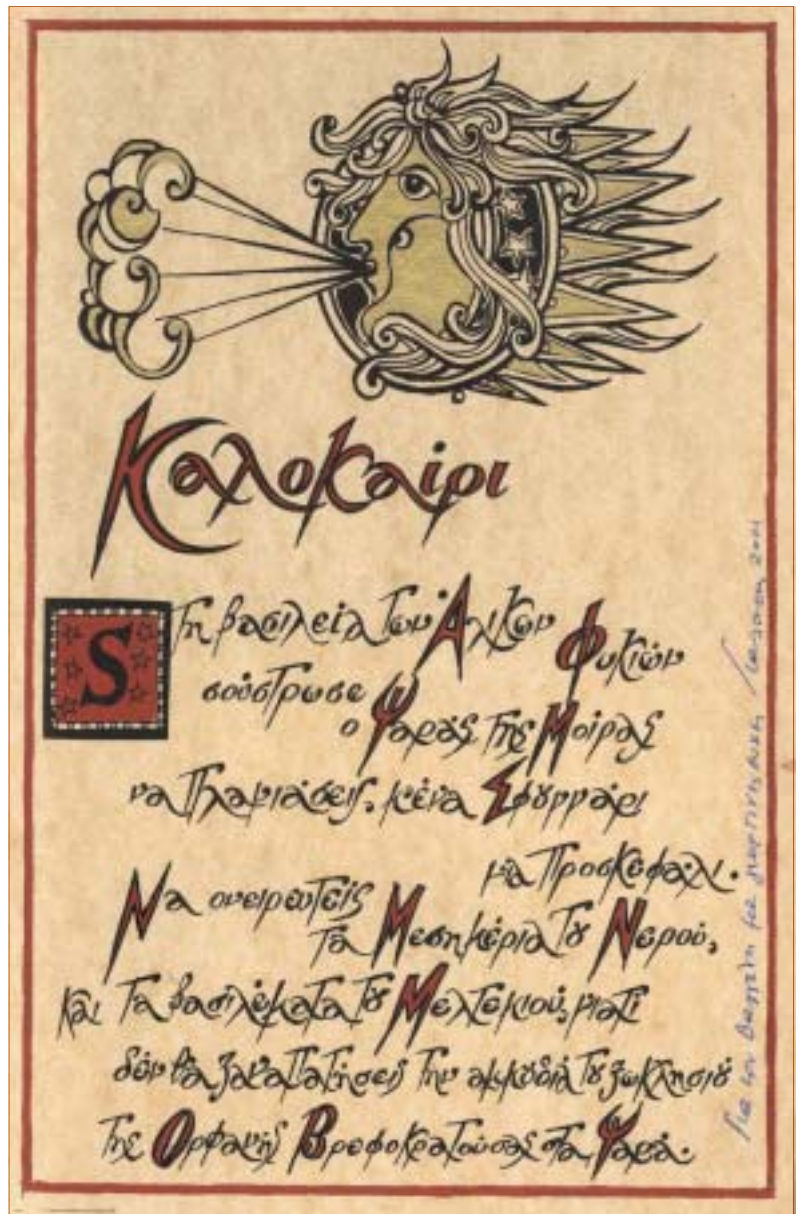 Καλοκαίρι
Στη βασιλεία των Αλικών Φυκιών
σούστρωσε
ο Ψαράς της Μοίρας
να πλαγιάσεις, κ' ένα Σφουγγάρι
για Προσκεφάλι.
Να ονειρευτείς
τα Μεσημέρια του Νερού,
και τα βασιλέματα του Μελτεμιού, γιατί
δέν θα ξαναπατήσεις την αμμουδιά του ξωκλησιού
της Ορφανής Βρεφοκρατούσας στα Ψαρά.
Για τον Βαγγέλη